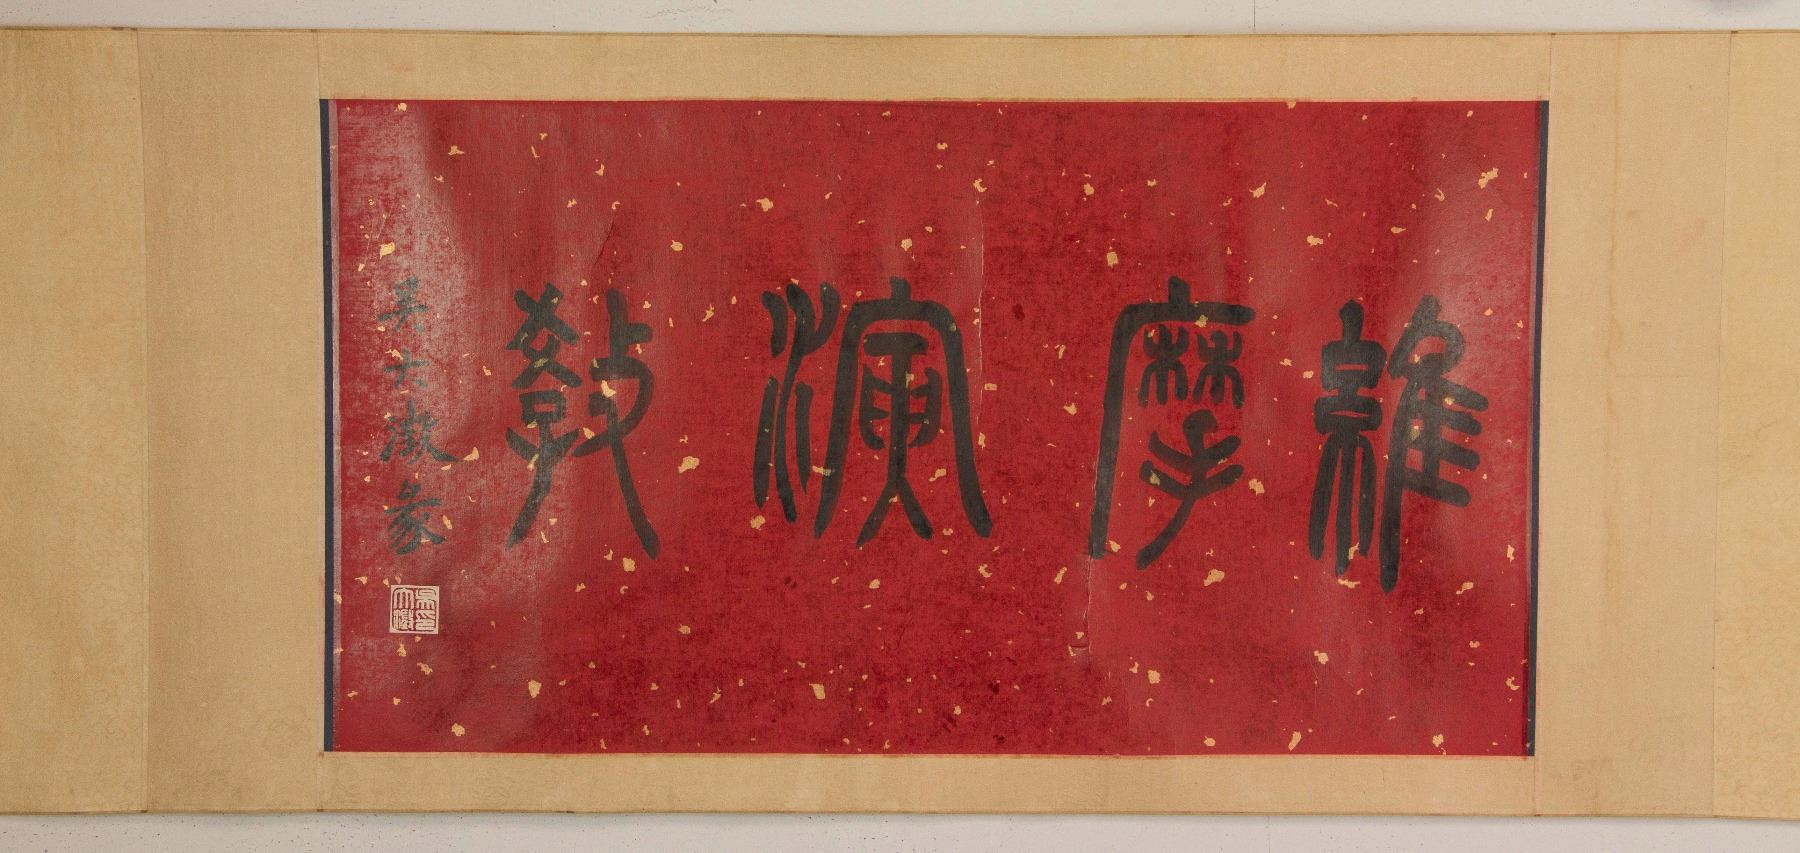 維摩演敎
吳大澂篆
吳大澂印